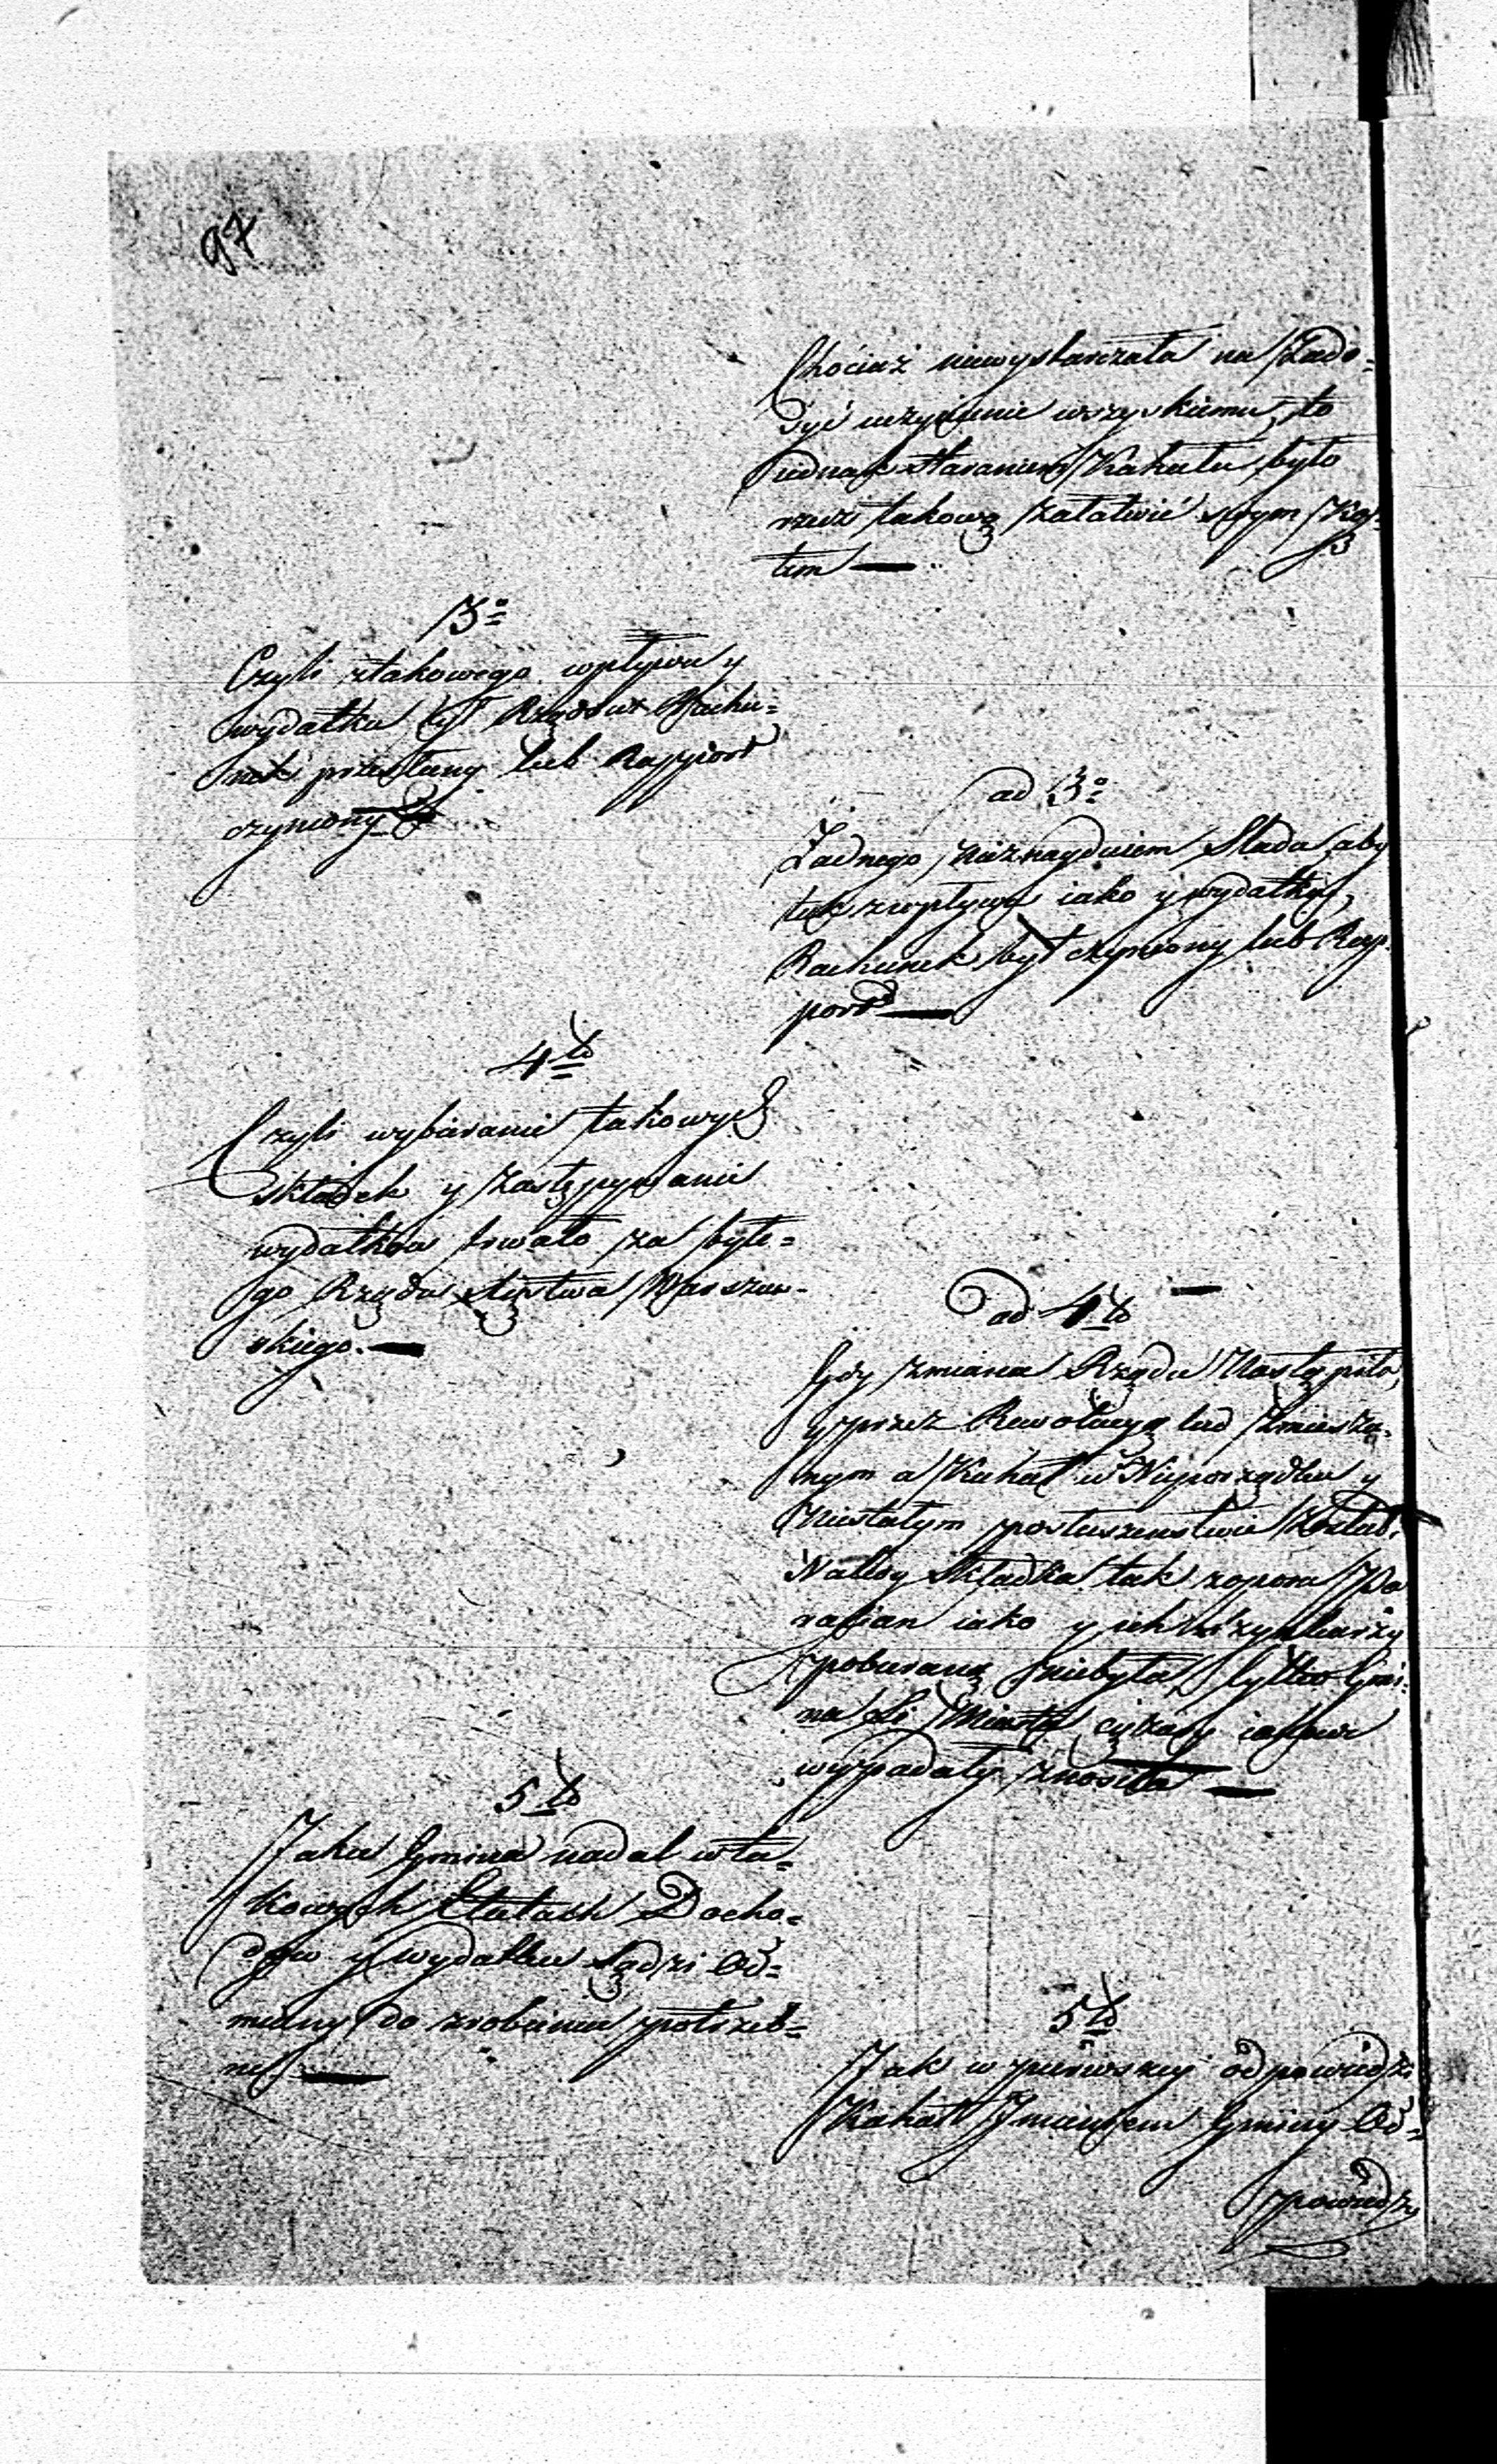 97
Chociaż niewystarczała na Zado-
syć uczynienie wszyskiemu, to
iednak staraniem Kahału było
rzecz takową załatwić swym Kosz-
tem —
3o
Czyli ztakowego wpływu y
wydatku był Rządowi Rachu=
nek przesłany lub Rapport
czyniony
ad 3o
Żadnego nieznayduiem Sladu aby
tak zwpływu iako y wydatku,
Rachunek był czyniony lub Rap-
port —
4to
Czyli wybieranie takowych
składek y zastępywanie
wydatków trwało za byłe=
go Rządu Xięstwa Warszaw-
skiego. —
ad 4to
Gdy zmiana Rządu Nastąpiła,
y przez Rewolucyą lud zmiesza-
nym a Kahał w Nieporządku y
Niestałym posłuszeństwie
składka tak zopora Pa
rafian iako y ich
pobieraną niebyła, tylko Gmi-
na Miasta ciężary iakowe
wypadały znosiła —
5to
Jaka Gmina nadal wta=
kowych Etatach Docho=
dów y wydatku Sądzi Od=
miany do zrobienia potrzeb=
ne —
5to
Jak w pierwszey odpowiedzi
Kahał Jmieniem Gminy Od=
powiedzi